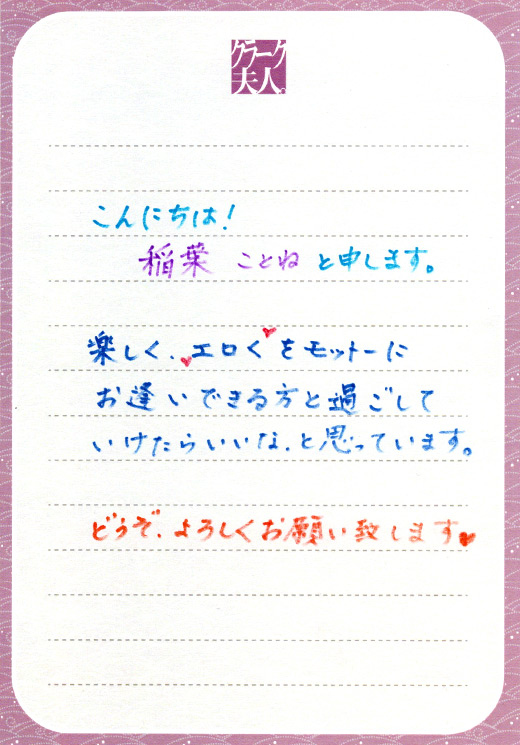 クラーク
夫人。
こんにちは!
稲葉 ことね と申します。
楽しく、エロく をモットーに
お逢いできる方と過ごして
いけたらいいな、と思っています。
どうぞ、よろしくお願い致します♥